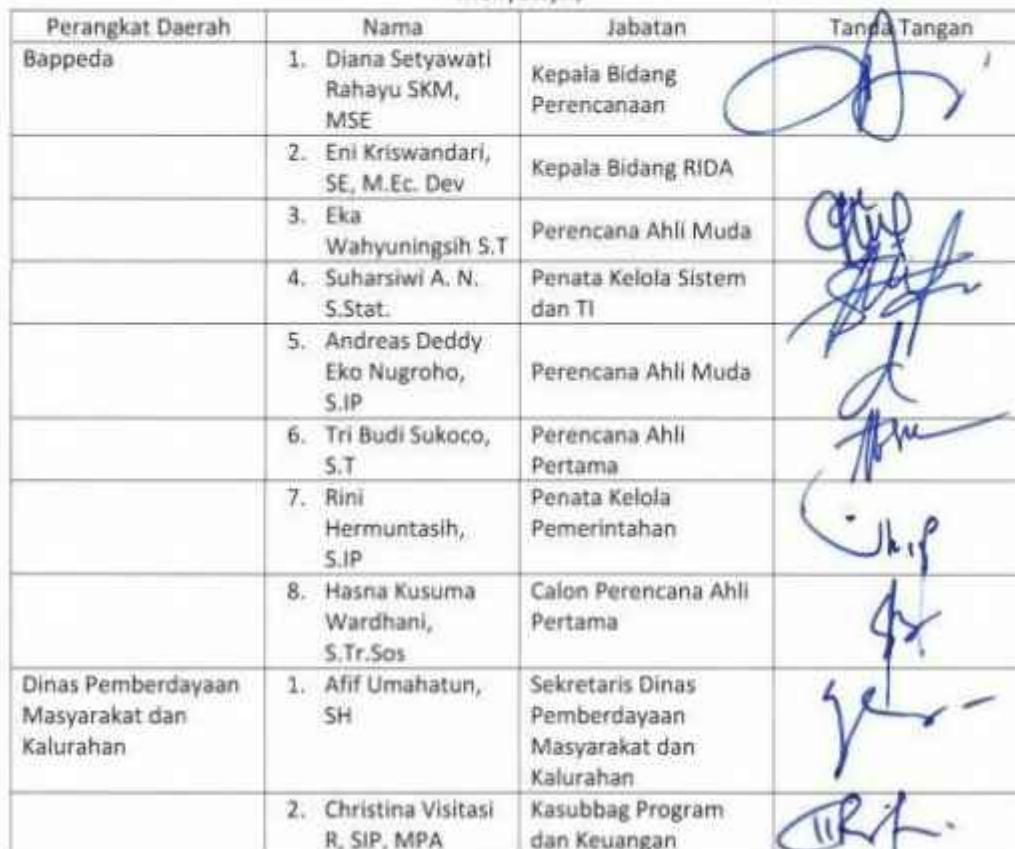 Perangkat Daerah Nama Jabatan Tanda Tangan
Bappeda 1. Diana Setyawati
Rahayu SKM,
MSE
Kepala Bidang
Perencanaan
2. Eni Kriswandari,
SE, M.Ec. Dev
Kepala Bidang RIDA
3. Eka
Wahyuningsih S.T
Perencana Ahli Muda
4. Suharsiwi A. N.
S.Stat.
Penata Kelola Sistem
dan TI
5. Andreas Deddy
Eko Nugroho,
S.IP
Perencana Ahli Muda
6. Tri Budi Sukoco,
S.T
Perencana Ahli
Pertama
7. Rini
Hermuntasih,
S.IP
Penata Kelola
Pemerintahan
8. Hasna Kusuma
Wardhani,
S.Tr.Sos
Calon Perencana Ahli
Pertama
Dinas Pemberdayaan
Masyarakat dan
Kalurahan
1. Afif Umahatun,
SH
Sekretaris Dinas
Pemberdayaan
Masyarakat dan
Kalurahan
2. Christina Visitasi
R, SIP, MPA
Kasubbag Program
dan Keuangan